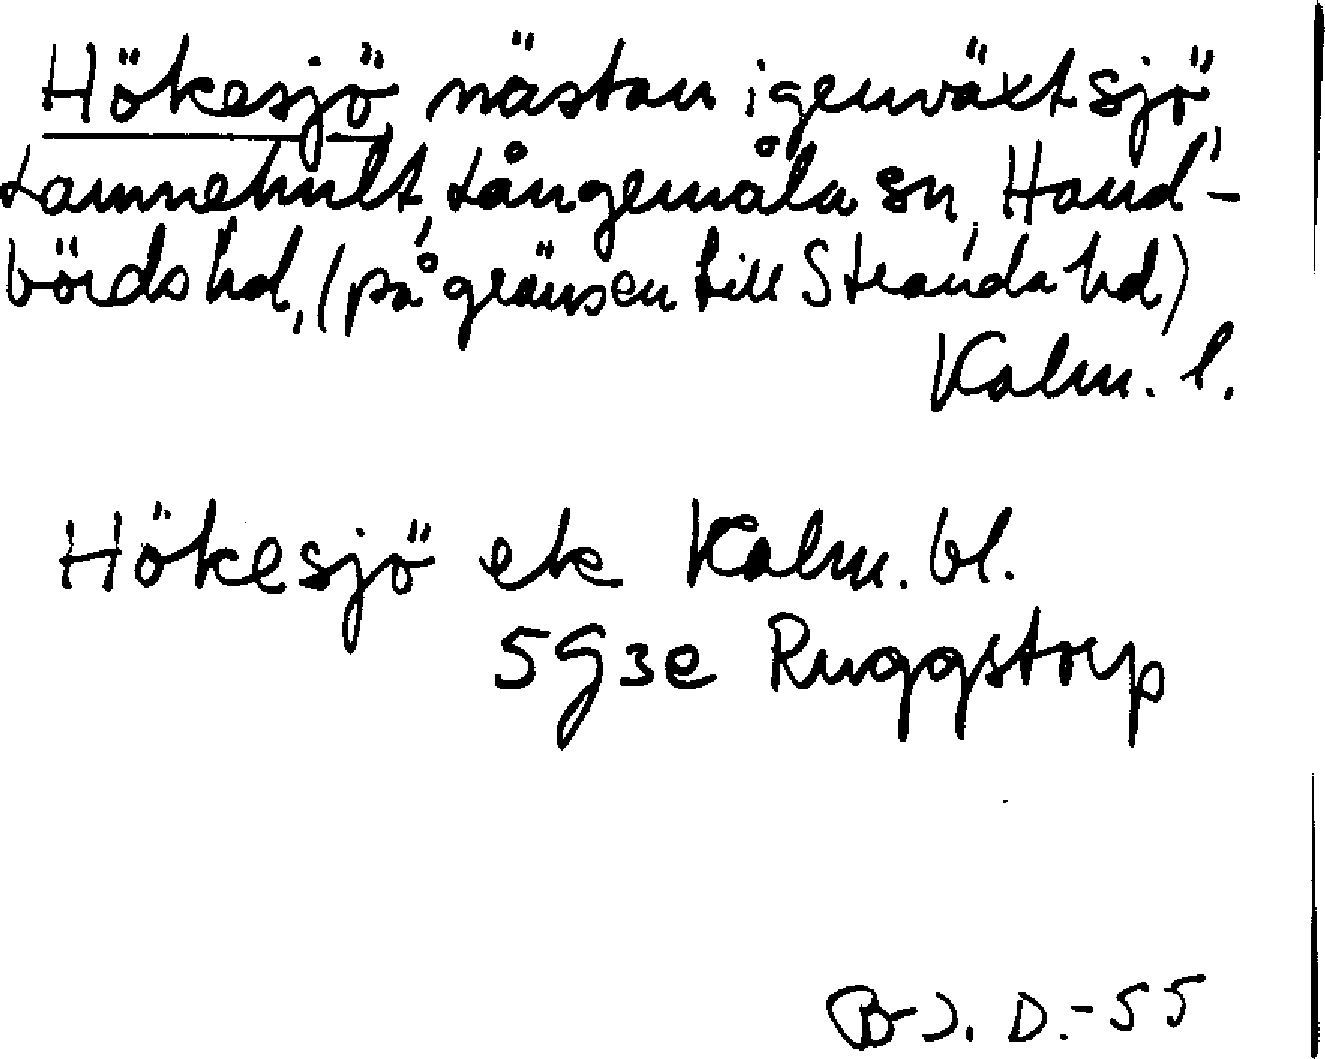 Hökesjö nästan igenväxt sjö,
Lamnehult, Långemåla sn, Hand-
börds hd, (på gränsen till Stranda hd)
Kalm. l.
Hökesjö ek Kalm. bl.
5G3e Ruggstorp
B-J. D.-55